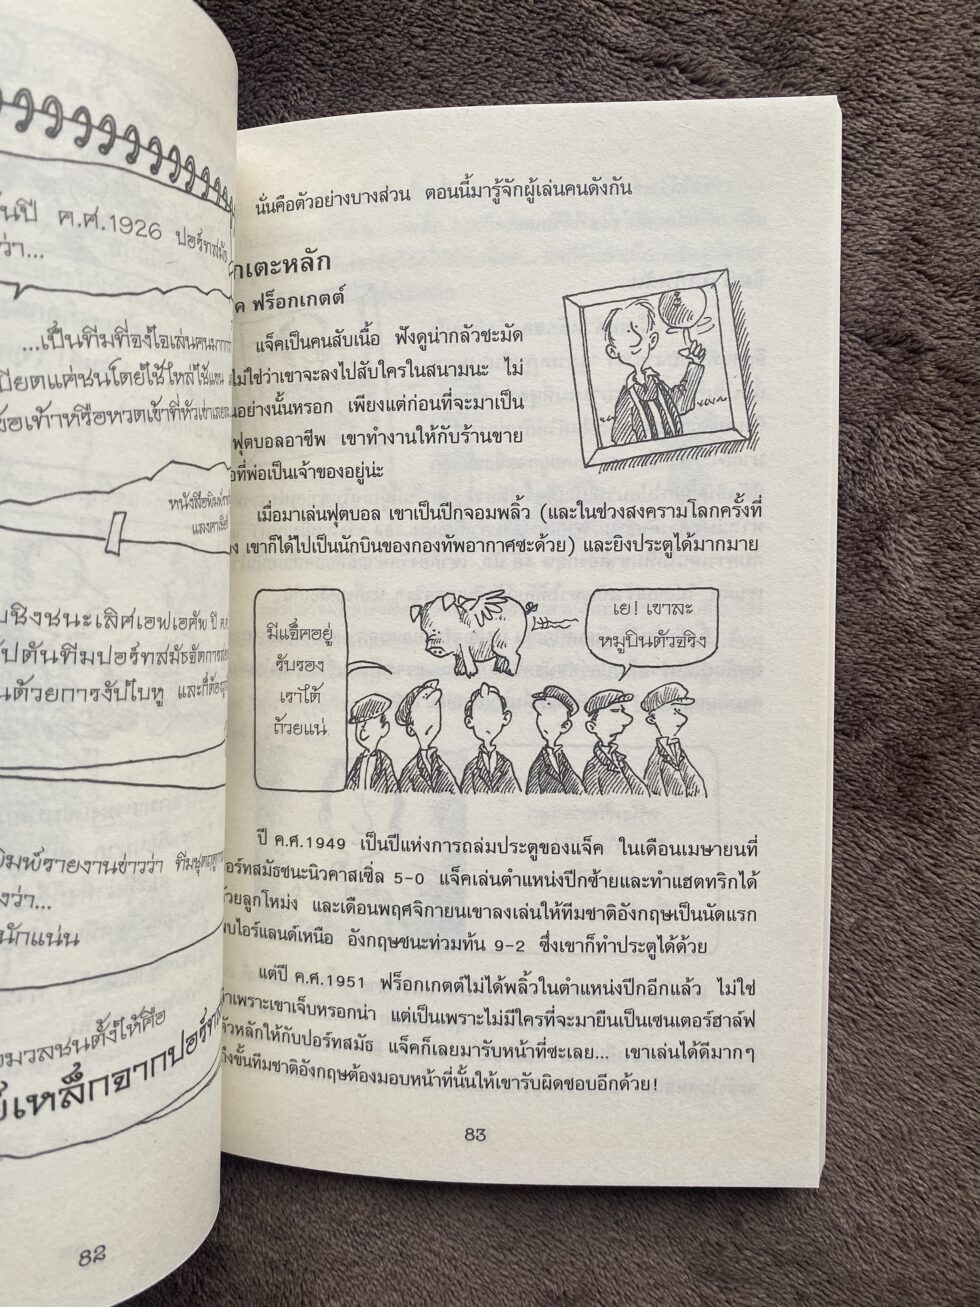 ค.ศ.1926 ปอร์ทสมัธ
ว่า...
...เป็นทีมที่จงใจเล่นคนมากกว่า
เบียดแค่ชนโดยใช้ไหล่ ใช้แขน
ข้อเท้าหรือหวดเข้าที่หัวเข่าเลย
หนังสือพิมพ์
ชิงชนะเลิศเอฟเอคัพ ปี ค.ศ.
ทีมปอร์ทสมัธจัดการ
ด้วยการงับใบหู และก็ต้อง
พิมพ์รายงานข่าวว่า ทีมชุด
ว่า...
นักแน่น
มวลชนตั้งให้คือ
เหล็กจากปอร์ท
82
นั่นคือตัวอย่างบางส่วน ตอนนี้มารู้จักผู้เล่นคนดังกัน
เตะหลัก
ค ฟร็อกเกตต์
แจ็คเป็นคนสับเนื้อ ฟังดูน่ากลัวชะมัด
ไม่ใช่ว่าเขาจะลงไปสับใครในสนามนะ ไม่
นอย่างนั้นหรอก เพียงแต่ก่อนที่จะมาเป็น
ฟุตบอลอาชีพ เขาทำงานให้กับร้านขาย
อที่พ่อเป็นเจ้าของอยู่น่ะ
เมื่อมาเล่นฟุตบอล เขาเป็นปีกจอมพลิ้ว (และในช่วงสงครามโลกครั้งที่
ง เขาก็ได้ไปเป็นนักบินของกองทัพอากาศซะด้วย) และยิงประตูได้มากมาย
มีแจ็คอยู่
รับรอง
เราได้
ถ้วยแน่
เย! เขาละ
หมูบินตัวจริง
ปี ค.ศ.1949 เป็นปีแห่งการถล่มประตูของแจ็ค ในเดือนเมษายนที่
อร์ทสมัธชนะนิวคาสเซิล 5-0 แจ็คเล่นตำแหน่งปีกซ้ายและทำแฮตทริกได้
วยลูกโหม่ง และเดือนพฤศจิกายนเขาลงเล่นให้ทีมชาติอังกฤษเป็นนัดแรก
พบไอร์แลนด์เหนือ อังกฤษชนะท่วมท้น 9-2 ซึ่งเขาก็ทำประตูได้ด้วย
แต่ปี ค.ศ.1951 ฟร็อกเกตต์ไม่ได้พลิ้วในตำแหน่งปีกอีกแล้ว ไม่ใช่
ว่าเพราะเขาเจ็บหรอกน่า แต่เป็นเพราะไม่มีใครที่จะมายืนเป็นเซนเตอร์ฮาล์ฟ
ตัวหลักให้กับปอร์ทสมัธ แจ็คก็เลยมารับหน้าที่ซะเลย... เขาเล่นได้ดีมากๆ
ถึงขั้นทีมชาติอังกฤษต้องมอบหน้าที่นั้นให้เขารับผิดชอบอีกด้วย!
83